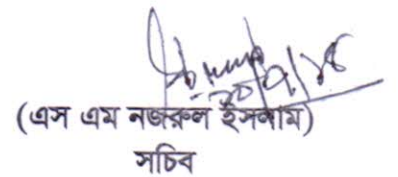 (এস এম নজরুল ইসলাম)
সচিব